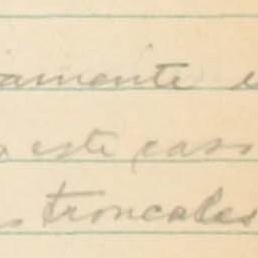 iamente e
este caso
s troncales